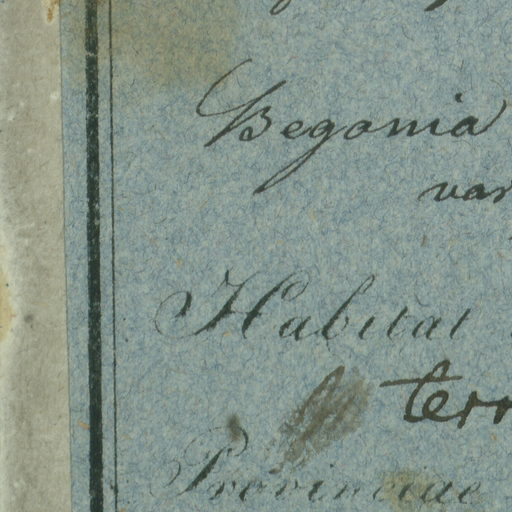 Begonia
var
Habitat
terr
Provinciae